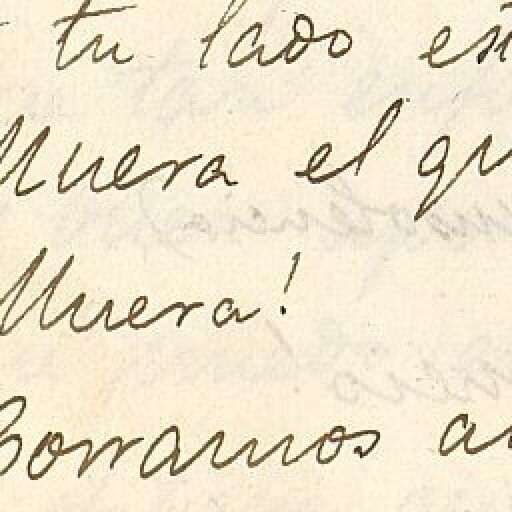 tu lado es
Muera el qu
Muera!
Corramos a